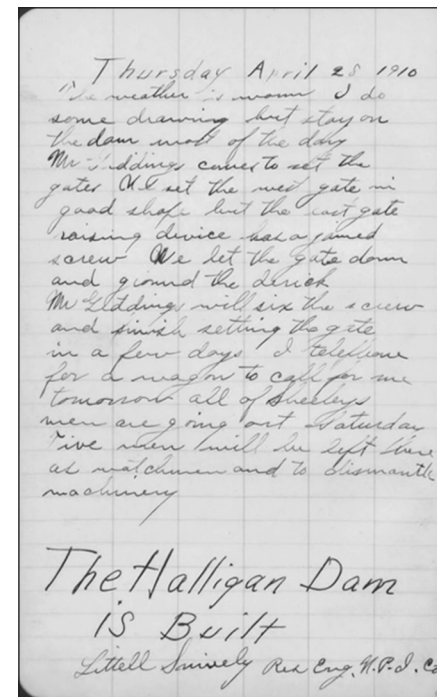 Thursday April 28 1910
The weather is warm I do
some drawing but stay on
the dam most of the day
Mr Giddings comes to set the
gates We set the west gate in
good shape but the east gate
raising device has a jamed
screw We let the gate down
and ground the derick
Mr Giddings will fix the screw
and finish setting the gate
in a few days. I telephone
for a wagon to call for me
tomorrow all of Sheeleys
men are going out Saturday
Five men will be left here
as watchmen and to dismantle
machinery
The Halligan Dam
is Built
Littell Snively Res Eng. N.P.I. Co